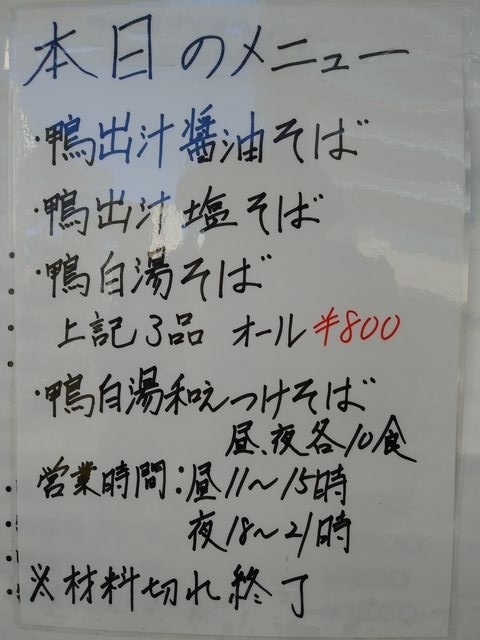 本日のメニュー
・鴨出汁醤油そば
・鴨出汁塩そば
・鴨白湯そば
上記3品 オール¥800
・鴨白湯和えつけそば
昼、夜各10食
営業時間:昼11〜15時
夜18〜21時
※材料切れ終了